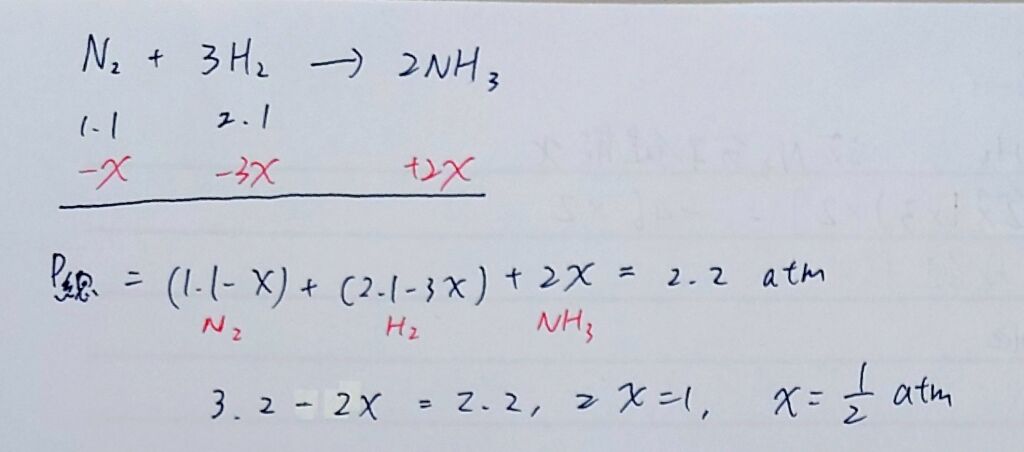 N₂ + 3H₂ → 2NH₃
1.1 2.1
-x -3x +2x
P總 = (1.1-x) + (2.1-3x) + 2x = 2.2 atm
N₂ H₂ NH₃
3.2 - 2x = 2.2, 2x=1, x= 1/2 atm